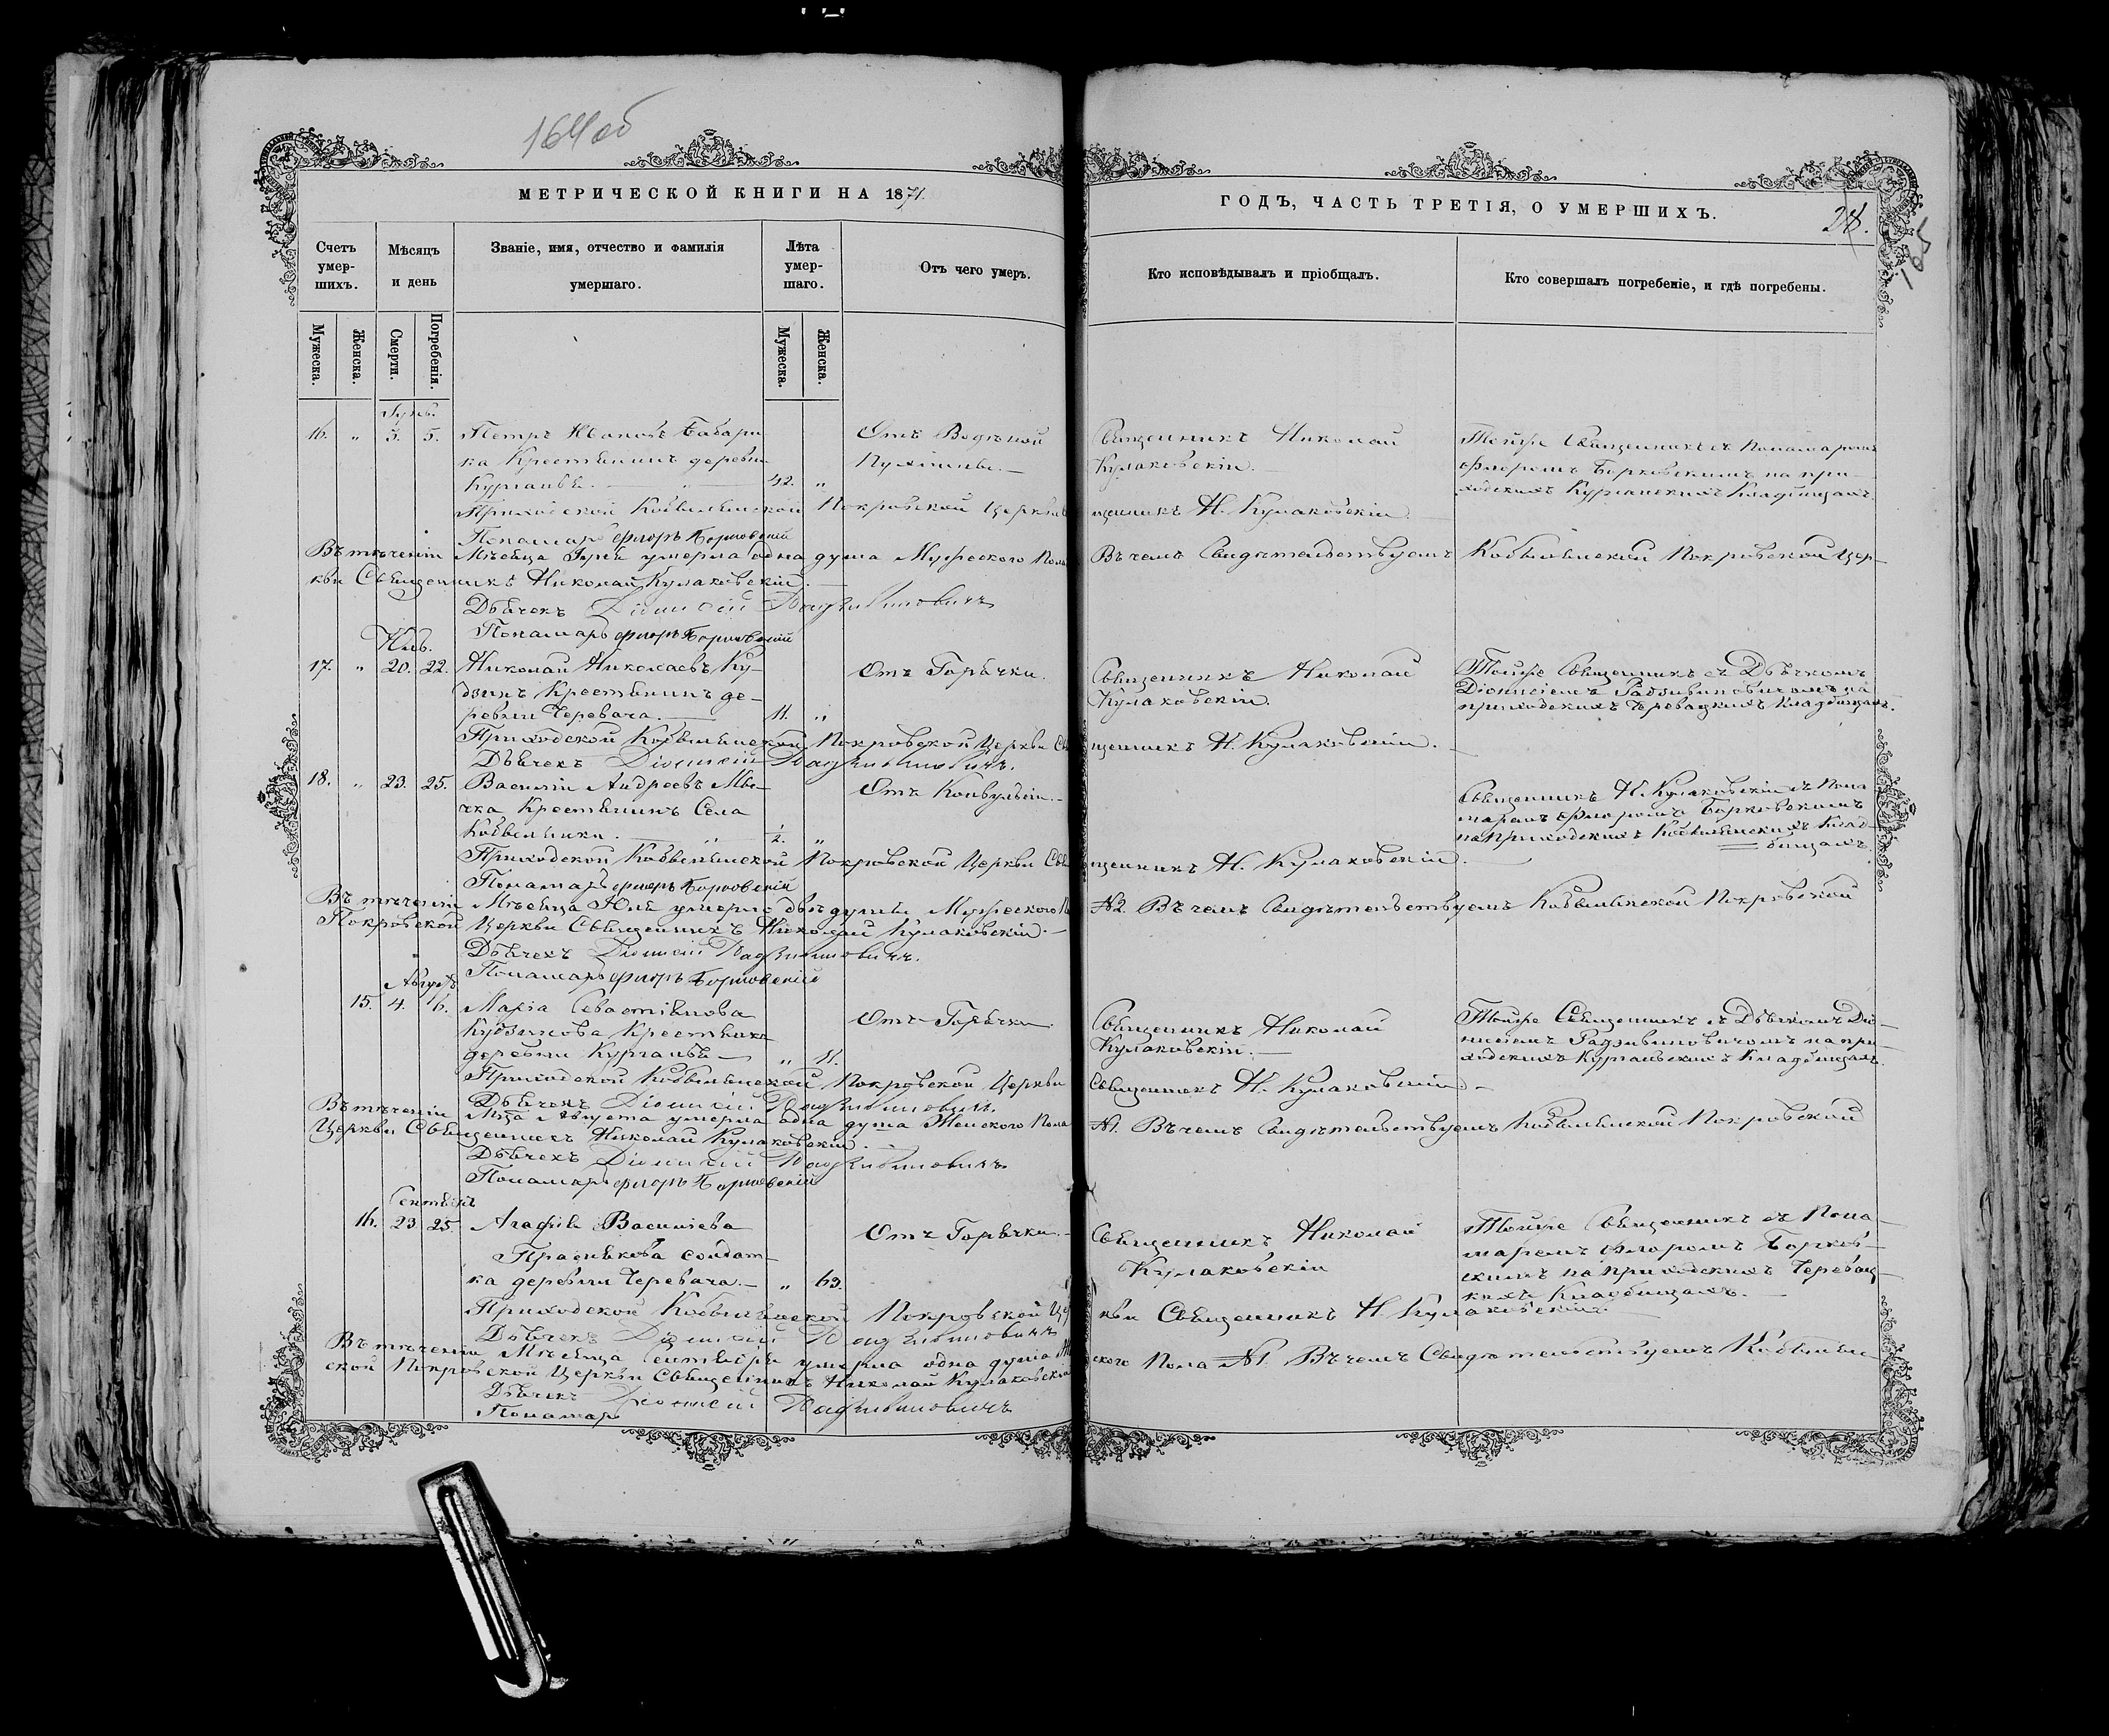 164 об
МЕТРИЧЕСКОЙ КНИГИ НА 1871
ГОДЪ, ЧАСТЬ ТРЕТІЯ, О УМЕРШИХЪ.
28.
165
Счетъ умер-шихъ.
Мѣсяцъ и день
Званіе, имя, отчество и фамилія умершаго.
Лѣта умер-шаго.
Отъ чего умеръ.
Кто исповѣдывалъ и пріобщалъ.
Кто совершалъ погребеніе, и гдѣ погребены.
Мужеска.
Женска.
Смерти.
Погребенія.
Мужеска.
Женска.
16. " 3. 5. Петръ Ивановъ Бабари-
ка Крестьянинъ деревни
42. "
Отъ Водяной
Священникъ Николай
Кулаковскій.
Тойже Священникъ съ Понамаремъ
Флоромъ Борковскимъ на при-
ходскихъ Курганскихъ Кладбищахъ.
Приходской Кобыльянской Покровской Церкви
щенникъ Н. Кулаковскій
Понамарь Флоръ Борковскій
Въ теченіи Мѣсяца умерла одна душа Мужеского Пола
Въ чемъ Свидѣтельствуемъ Кобыльянской Покровской Цер-
кви Священникъ Николай Кулаковскій.
Дьячекъ Діонисій Радзивиновичъ
Понамарь Флоръ Борковскій
17. " 20. 22. Николай Николаевъ Ку-
дзинъ Крестьянинъ де-
ревни Черевача. 11. "
Отъ Горячки.
Священникъ Николай
Кулаковскій.
Тойже Священникъ съ Дьячкомъ
Діонисіемъ Радзивиновичомъ на
приходскихъ Черевацкихъ Кладбищахъ.
Приходской Кобыльянской Покровской Церкви Свя
щенникъ Н. Кулаковскій.
Дьячекъ Діонисій Радзивиновичъ.
18. " 23. 25. Василій Андреевъ
Крестьянинъ Села
1/2. "
Отъ Конвульсіи.
Священникъ Н. Кулаковскій съ Пона
маремъ Флоромъ Борковскимъ
на Приходскихъ Кобыльянскихъ Клад-
бищахъ.
Приходской Кобыльянской Покровской Церкви Свя
щенникъ Н. Кулаковскій.
Понамарь Флоръ Борковскій
Въ теченіи Мѣсяца Юля умерло двѣ душы Мужеского
№2. Въ чемъ Свидѣтельствуемъ Кобыльянской Покровской
Покровской Церкви Священникъ Николай Кулаковскій.
Дьячекъ Діонисій Радзивиновичъ.
Понамарь Флоръ Борковскій
15. 4. 16. Марія Севастіянова
Кудзинова Крестьянка
деревни " 11.
Отъ Горячки
Священникъ Николай
Кулаковскій.
Тойже Священникъ съ Дьячкомъ Діо-
нисіемъ Радзивиновичомъ на при
ходскихъ Курганскихъ Кладбищахъ.
Приходской Кобыльянской Покровской Церкви
Священникъ Н. Кулаковскій
Дьячекъ Діонисій Радзивиновичъ.
Въ теченіи Мѣца Августа умерла одна душа Женского Пола
№1. Въ чемъ Свидѣтельствуемъ Кобыльянской Покровской
Церкви Священникъ Николай Кулаковскій.
Дьячекъ Діонисій Радзивиновичъ
Понамарь Флоръ Борковскій
16. 23. 25. Агафія Василіева
солдат-
ка деревни Черевача. " 63.
Отъ Горячки.
Священникъ Николай
Кулаковскій
Тойже Священникъ съ Пона-
маремъ Флоромъ Борков-
скимъ на приходскихъ Черевац-
кихъ Кладбищахъ.
Приходской Кобыльянской Покровской Цер
кви Священникъ Н. Кулаковскій.
Дьячекъ Діонисій Радзивиновичъ
Въ теченіи Мѣсяца Сентября умерла одна душа Жен
ского Пола №1. Въ чемъ Свидѣтельствуемъ Кобыльян-
ской Покровской Церкви Священникъ Николай Кулаковскій
Дьячекъ Діонисій Радзивиновичъ
Понамарь